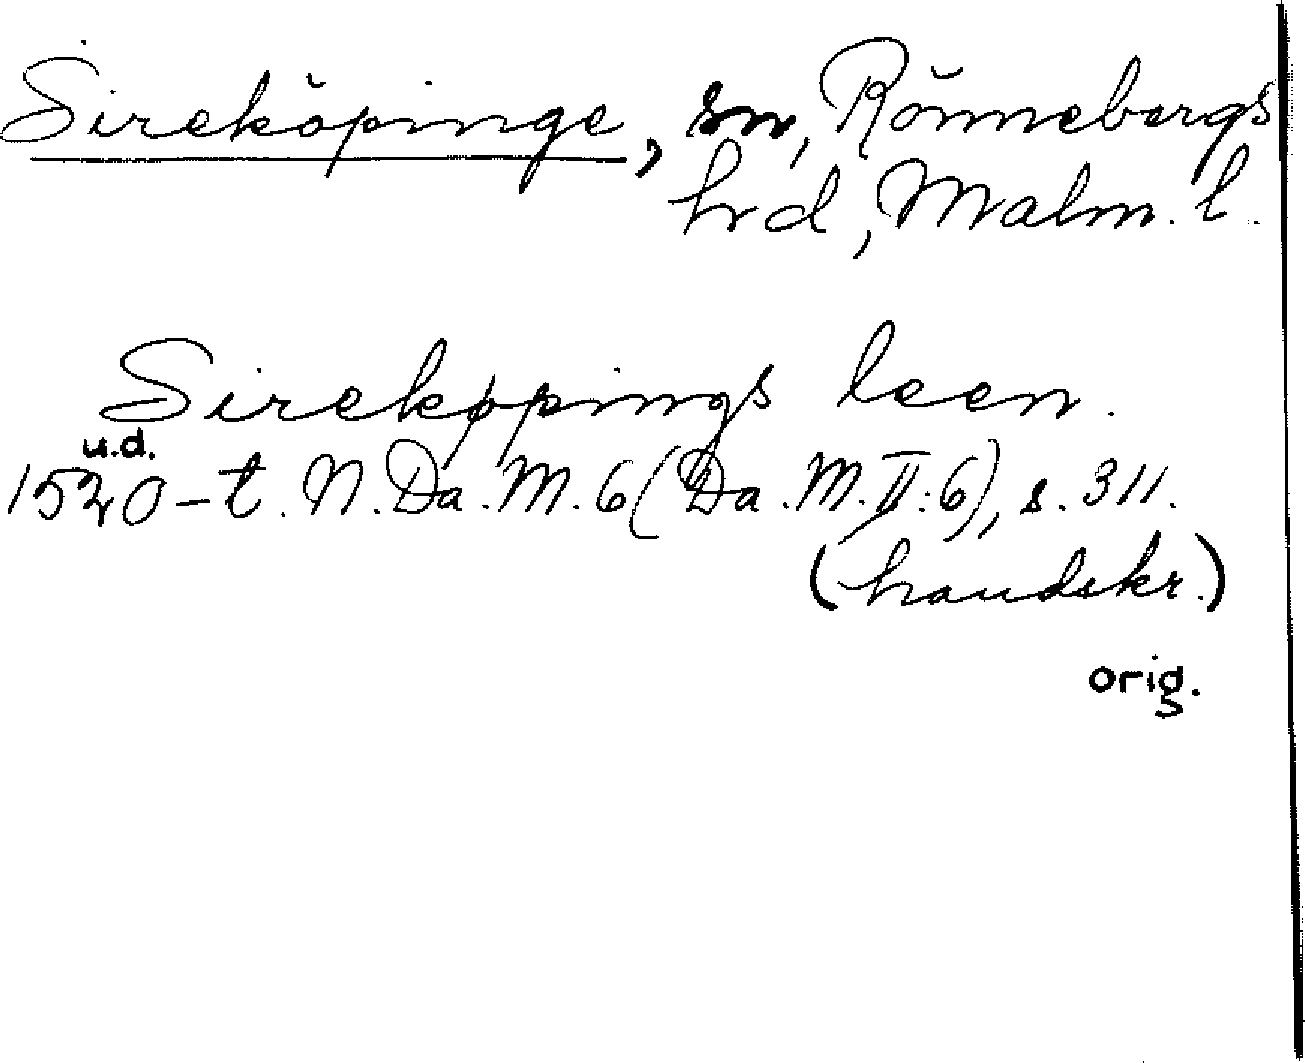 Sireköpinge, sn, Rönnebergs
hrd, Malm. l.
Sirekøpings leen.
u.d.
1520-t. N. Da. M. 6 (Da. M. II: 6), s. 311.
(handskr.)
orig.